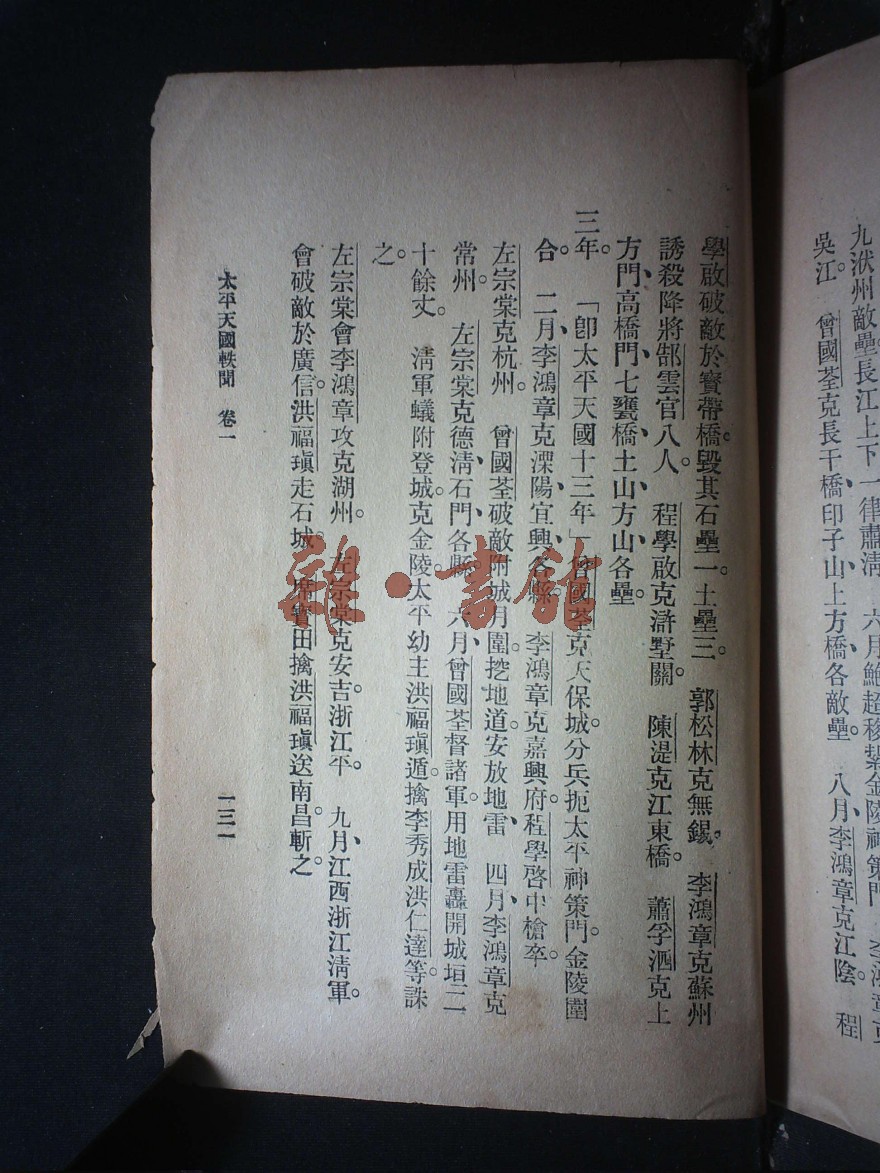 九洑州敵壘。長江上下一律肅清 六月鮑超移紮金陵神策門
吳江。 曾國荃克長干橋、印子山、上方橋各敵壘。 八月、李鴻章克江陰。 程
學啟破敵於寶帶橋。毀其石壘一土壘三。 郭松林克無錫。 李鴻章克蘇州
誘殺降將郜雲官八人。 程學啟克滸墅關。 陳湜克江東橋。 蕭孚泗克上
方門、高橋門、七甕橋、土山、方山各壘。
三年。 「卽太平天國十三年」曾國荃克天保城。分兵扼太平神策門。金陵圍
合。 二月、李鴻章克溧陽、宜興各縣。 李鴻章克嘉興府。程學啓中槍卒。
左宗棠克杭州。 曾國荃破敵附城月圍。挖地道。安放地雷 四月、李鴻章克
常州。 左宗棠克德淸、石門各縣。 六月、曾國荃督諸軍、用地雷轟開城垣二
十餘丈。 淸軍蟻附登城。克金陵。太平幼主洪福瑱遁。擒李秀成洪仁達等誅
之。
左宗棠會李鴻章攻克湖州。 左宗棠克安吉。浙江平。 九月、江西浙江淸軍。
會破敵於廣信。洪福瑱走石城。 席寶田擒洪福瑱、送南昌、斬之。
太平天國軼聞 卷一
一三一
雜·書館